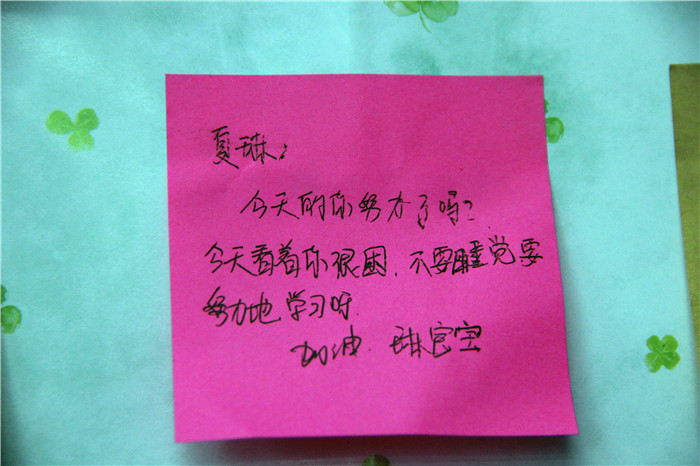 夏琳:
今天的你努力了吗?
今天看着你很困.不要睡觉要
努力地学习呀.
加油.琳宝宝